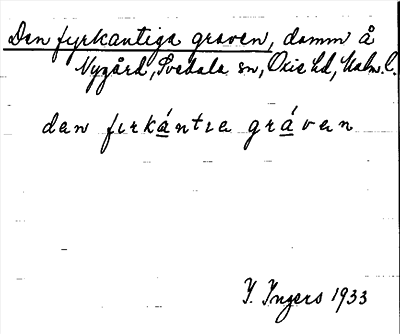 Den fyrkantiga graven, damm å
Nygård, Svedala sn, Oxie hd, Malm. l.
dan fırkántıa grávan
I. Ingers 1933